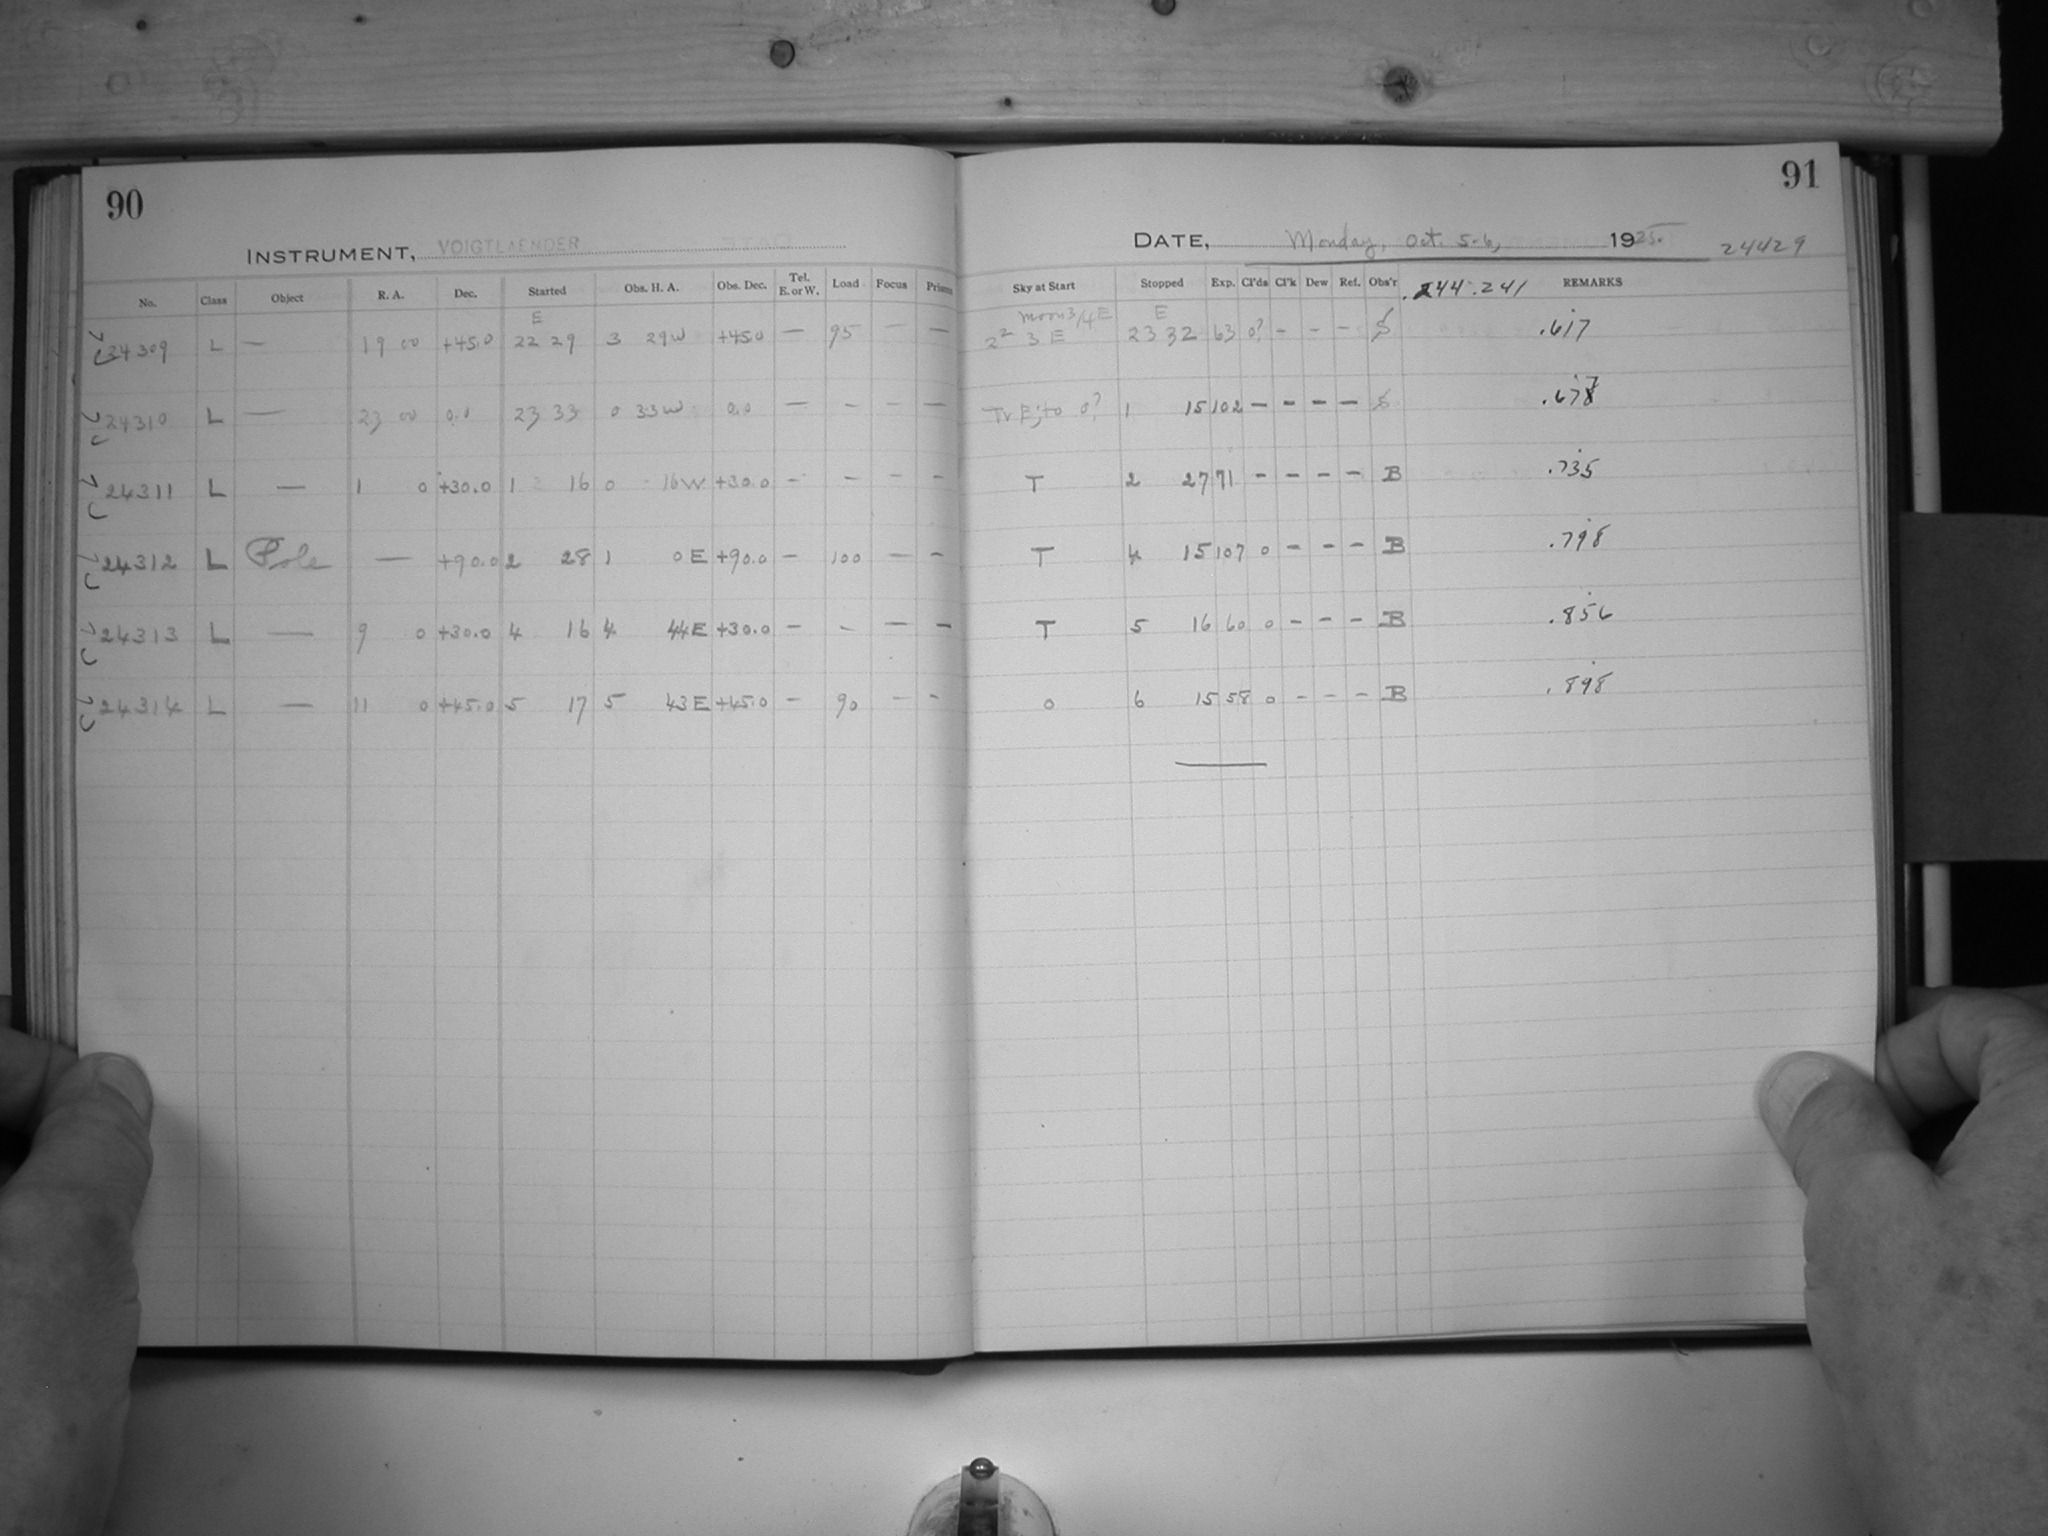 90
INSTRUMENT, VOIGTLAENDER
No. Class Object R. A. Dec. Started Obs. H. A. Obs. Dec. Tel. E. or W. Load Focus Prisms
E
24309 L — 19 00 +45.0 22 29 3 29W +45.0 — 95 — —
24310 L — 23 00 0.0 23 33 0 33W 0.0 — - - —
24311 L — 1 0 +30.0 1 16 0 16W +30.0 - - - -
24312 L Pole — +90.0 2 28 1 0E +90.0 - 100 - -
24313 L — 9 0 +30.0 4 16 4 44E +30.0 - - — -
24314 L — 11 0 +45.0 5 17 5 43E +45.0 - 90 - -
91
DATE, Monday, Oct. 5-6, 1925. 24429
Sky at Start Stopped Exp. Cl'ds Cl'k Dew Ref. Obs'r 244.241 REMARKS
moon 3/4 E E
2² 3 E 23 32 63 0? - - - S .617
Tr E; to 0? 1 15 102 — - — — S .678
T 2 27 71 - - - - B .735
T 4 15 107 0 - - - B .798
T 5 16 60 0 - - - B .856
0 6 15 58 0 - - - B .898